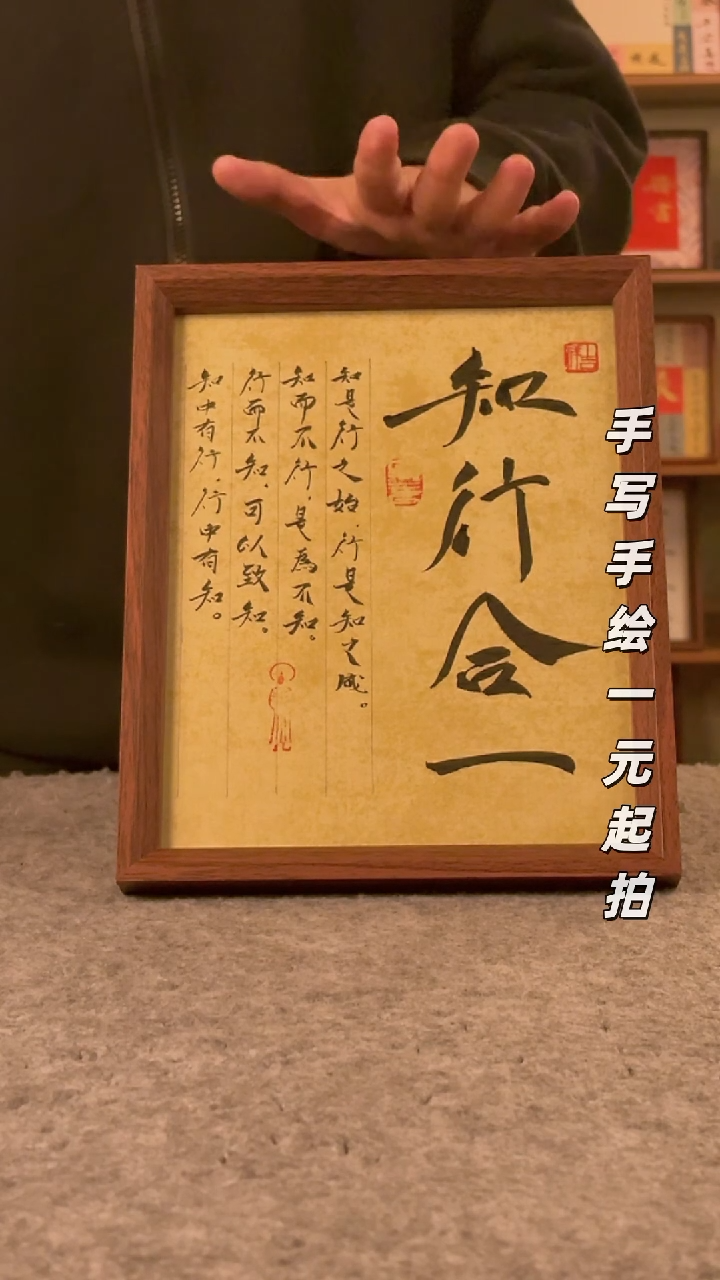 知行合一
知是行之始，行是知之成。
知而不行，是為不知。
行而不知，可以致知。
知中有行，行中有知。
手写手绘一元起拍